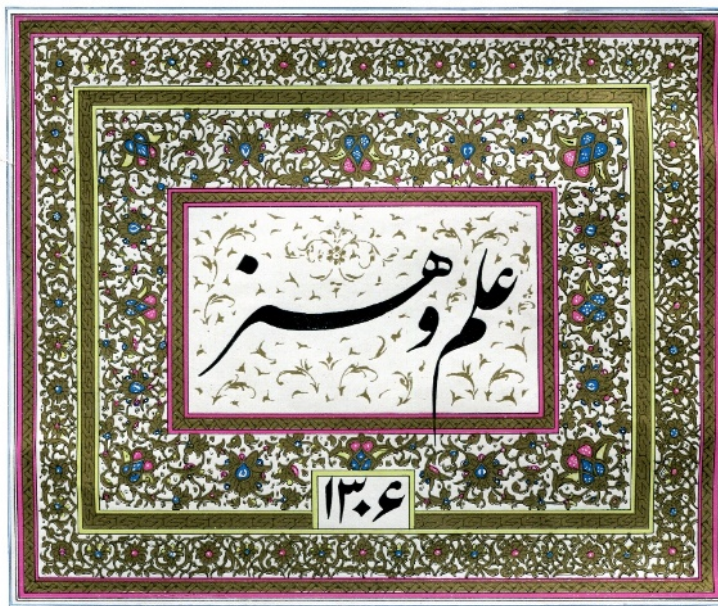 علم و هنر
۱۳۰۶